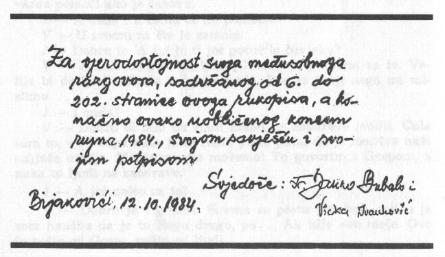 Za vjerodostojnost svoga međusobnoga
razgovora, sadržanog od 6. do
202. stranice ovoga rukopisa, a ko-
načno ovako uobličenog koncem
rujna 1984., svojom savješću i svo-
jim potpisom
Svjedoče: Fr. Janko Bubalo i
Bijakovići, 12.10.1984, Vicka Ivanković